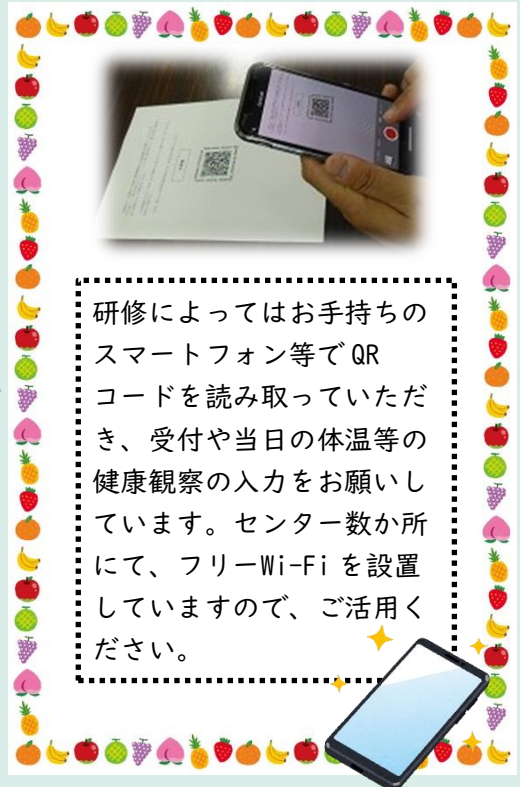 研修によってはお手持ちの
スマートフォン等でQR
コードを読み取っていただ
き、受付や当日の体温等の
健康観察の入力をお願いし
ています。センター数か所
にて、フリーWi-Fiを設置
していますので、ご活用く
ださい。